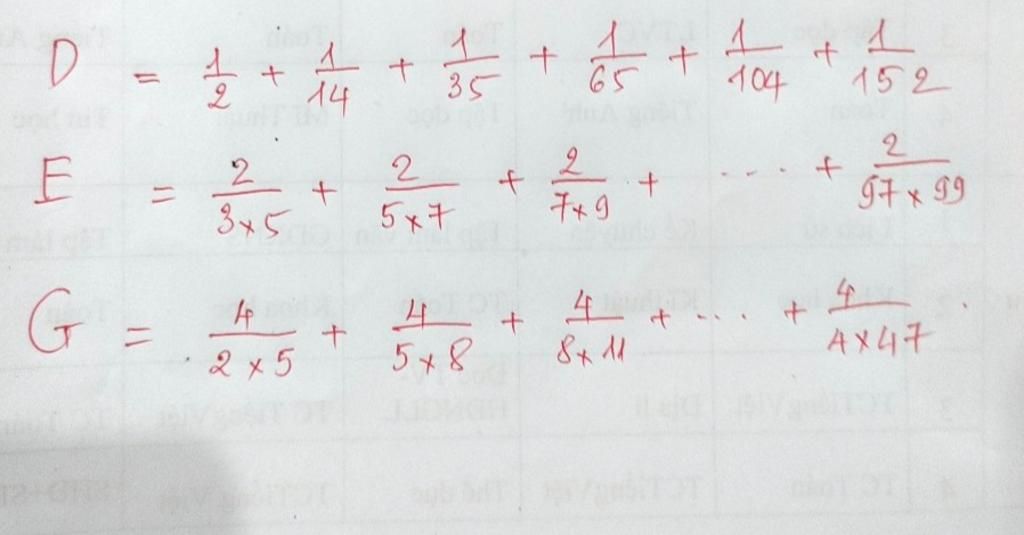 D = 1/2 + 1/14 + 1/35 + 1/65 + 1/104 + 1/152
E = 2/3×5 + 2/5×7 + 2/7×9 + .... + 2/97×99
G = 4/2×5 + 4/5×8 + 4/8×11 + ... + 4/4×47